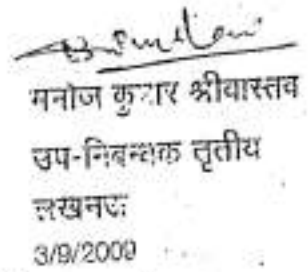 मनोज कुमार श्रीवास्तव
उप-निबन्धक तृतीय
लखनऊ
3/9/2009